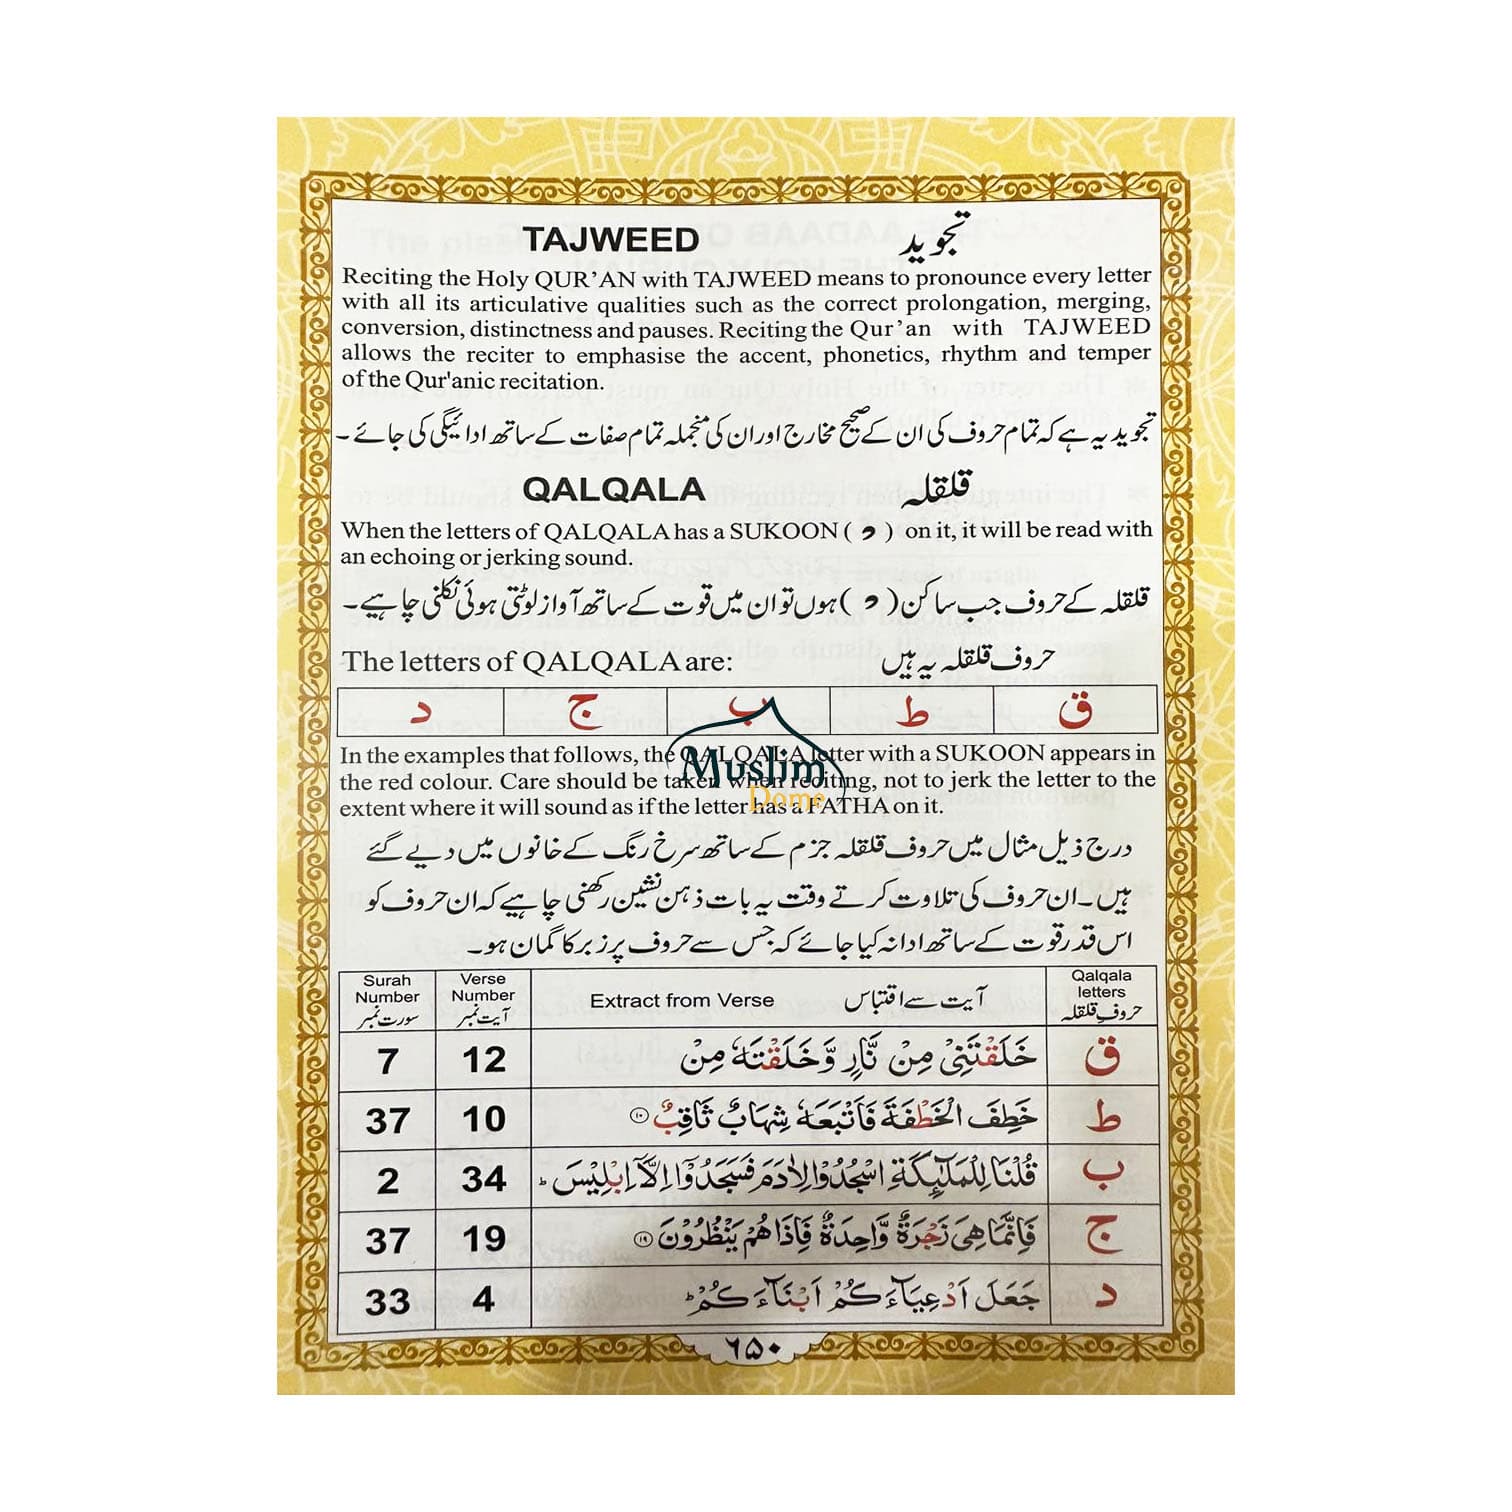 TAJWEED تجوید
Reciting the Holy QUR'AN with TAJWEED means to pronounce every letter
with all its articulative qualities such as the correct prolongation, merging,
conversion, distinctness and pauses. Reciting the Qur'an with TAJWEED
allows the reciter to emphasise the accent, phonetics, rhythm and temper
of the Qur'anic recitation.
تجوید یہ ہے کہ تمام حروف کی ان کے صحیح مخارج اور ان کی منجملہ تمام صفات کے ساتھ ادائیگی کی جائے ۔
QALQALA قلقلہ
When the letters of QALQALA has a SUKOON ( ) on it, it will be read with
an echoing or jerking sound.
قلقلہ کے حروف جب ساکن ( ) ہوں تو ان میں قوت کے ساتھ آواز لوٹتی ہوئی نکلنی چاہیے۔
The letters of QALQALA are: حروف قلقلہ یہ ہیں
ق ط ب ج د
Muslim
Dome
In the examples that follows, the QALQALA letter with a SUKOON appears in
the red colour. Care should be taken when reciting, not to jerk the letter to the
extent where it will sound as if the letter has a FATHA on it.
درج ذیل مثال میں حروف قلقلہ جزم کے ساتھ سرخ رنگ کے خانوں میں دیے گئے
ہیں۔ ان حروف کی تلاوت کرتے وقت یہ بات ذہن نشین رکھنی چاہیے کہ ان حروف کو
اس قدر قوت کے ساتھ ادا نہ کیا جائے کہ جس سے حروف پر زبر کا گمان ہو۔
Surah Number سورت نمبر
Verse Number آیت نمبر
Extract from Verse آیت سے اقتباس
Qalqala letters حروفِ قلقلہ
7 12 خَلَقْتَنِیْ مِنْ نَّارٍ وَّخَلَقْتَهٗ مِنْ ق
37 10 خَطِفَ الْخَطْفَةَ فَاَتْبَعَهٗ شِهَابٌ ثَاقِبٌ ۝۱۰ ط
2 34 قُلْنَا لِلْمَلٰٓئِكَةِ اسْجُدُوْا لِاٰدَمَ فَسَجَدُوْۤا اِلَّاۤ اِبْلِیْسَ ؕ ب
37 19 فَاِنَّمَا هِیَ زَجْرَةٌ وَّاحِدَةٌ فَاِذَا هُمْ یَنْظُرُوْنَ ۝۱۹ ج
33 4 جَعَلَ اَدْعِیَآءَكُمْ اَبْنَآءَكُمْ ؕ د
۶۵۰